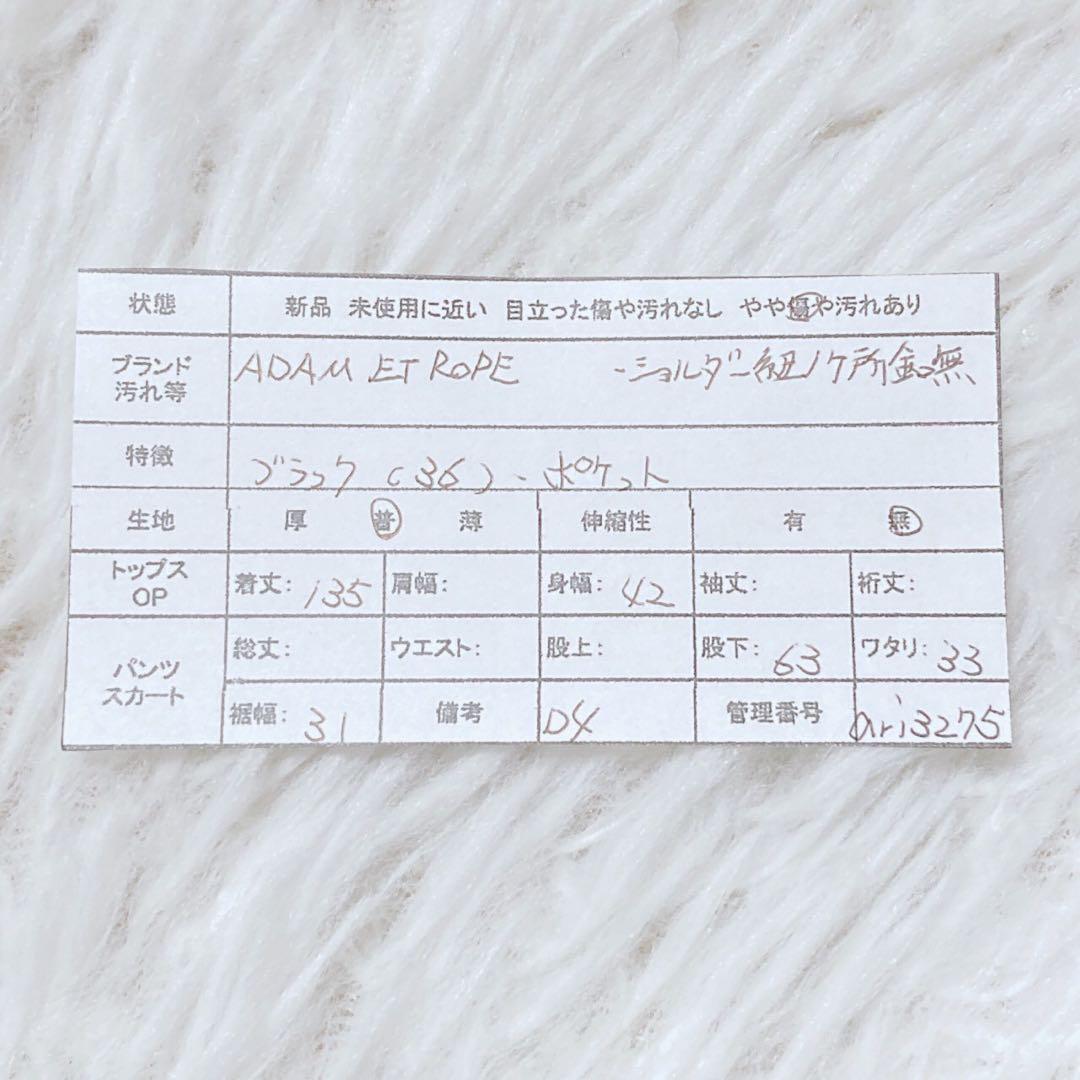 状態 新品 未使用に近い 目立った傷や汚れなし やや傷や汚れあり
ブランド 汚れ等 ADAM ET ROPE ・ショルダー紐1ケ所金具無
特徴 ブラック (36)、ポケット
生地 厚 普 薄 伸縮性 有 無
トップス OP 着丈: 135 肩幅: 身幅: 42 袖丈: 裄丈:
パンツ スカート 総丈: ウエスト: 股上: 股下: 63 ワタリ: 33
裾幅: 31 備考 D4 管理番号 ari3275